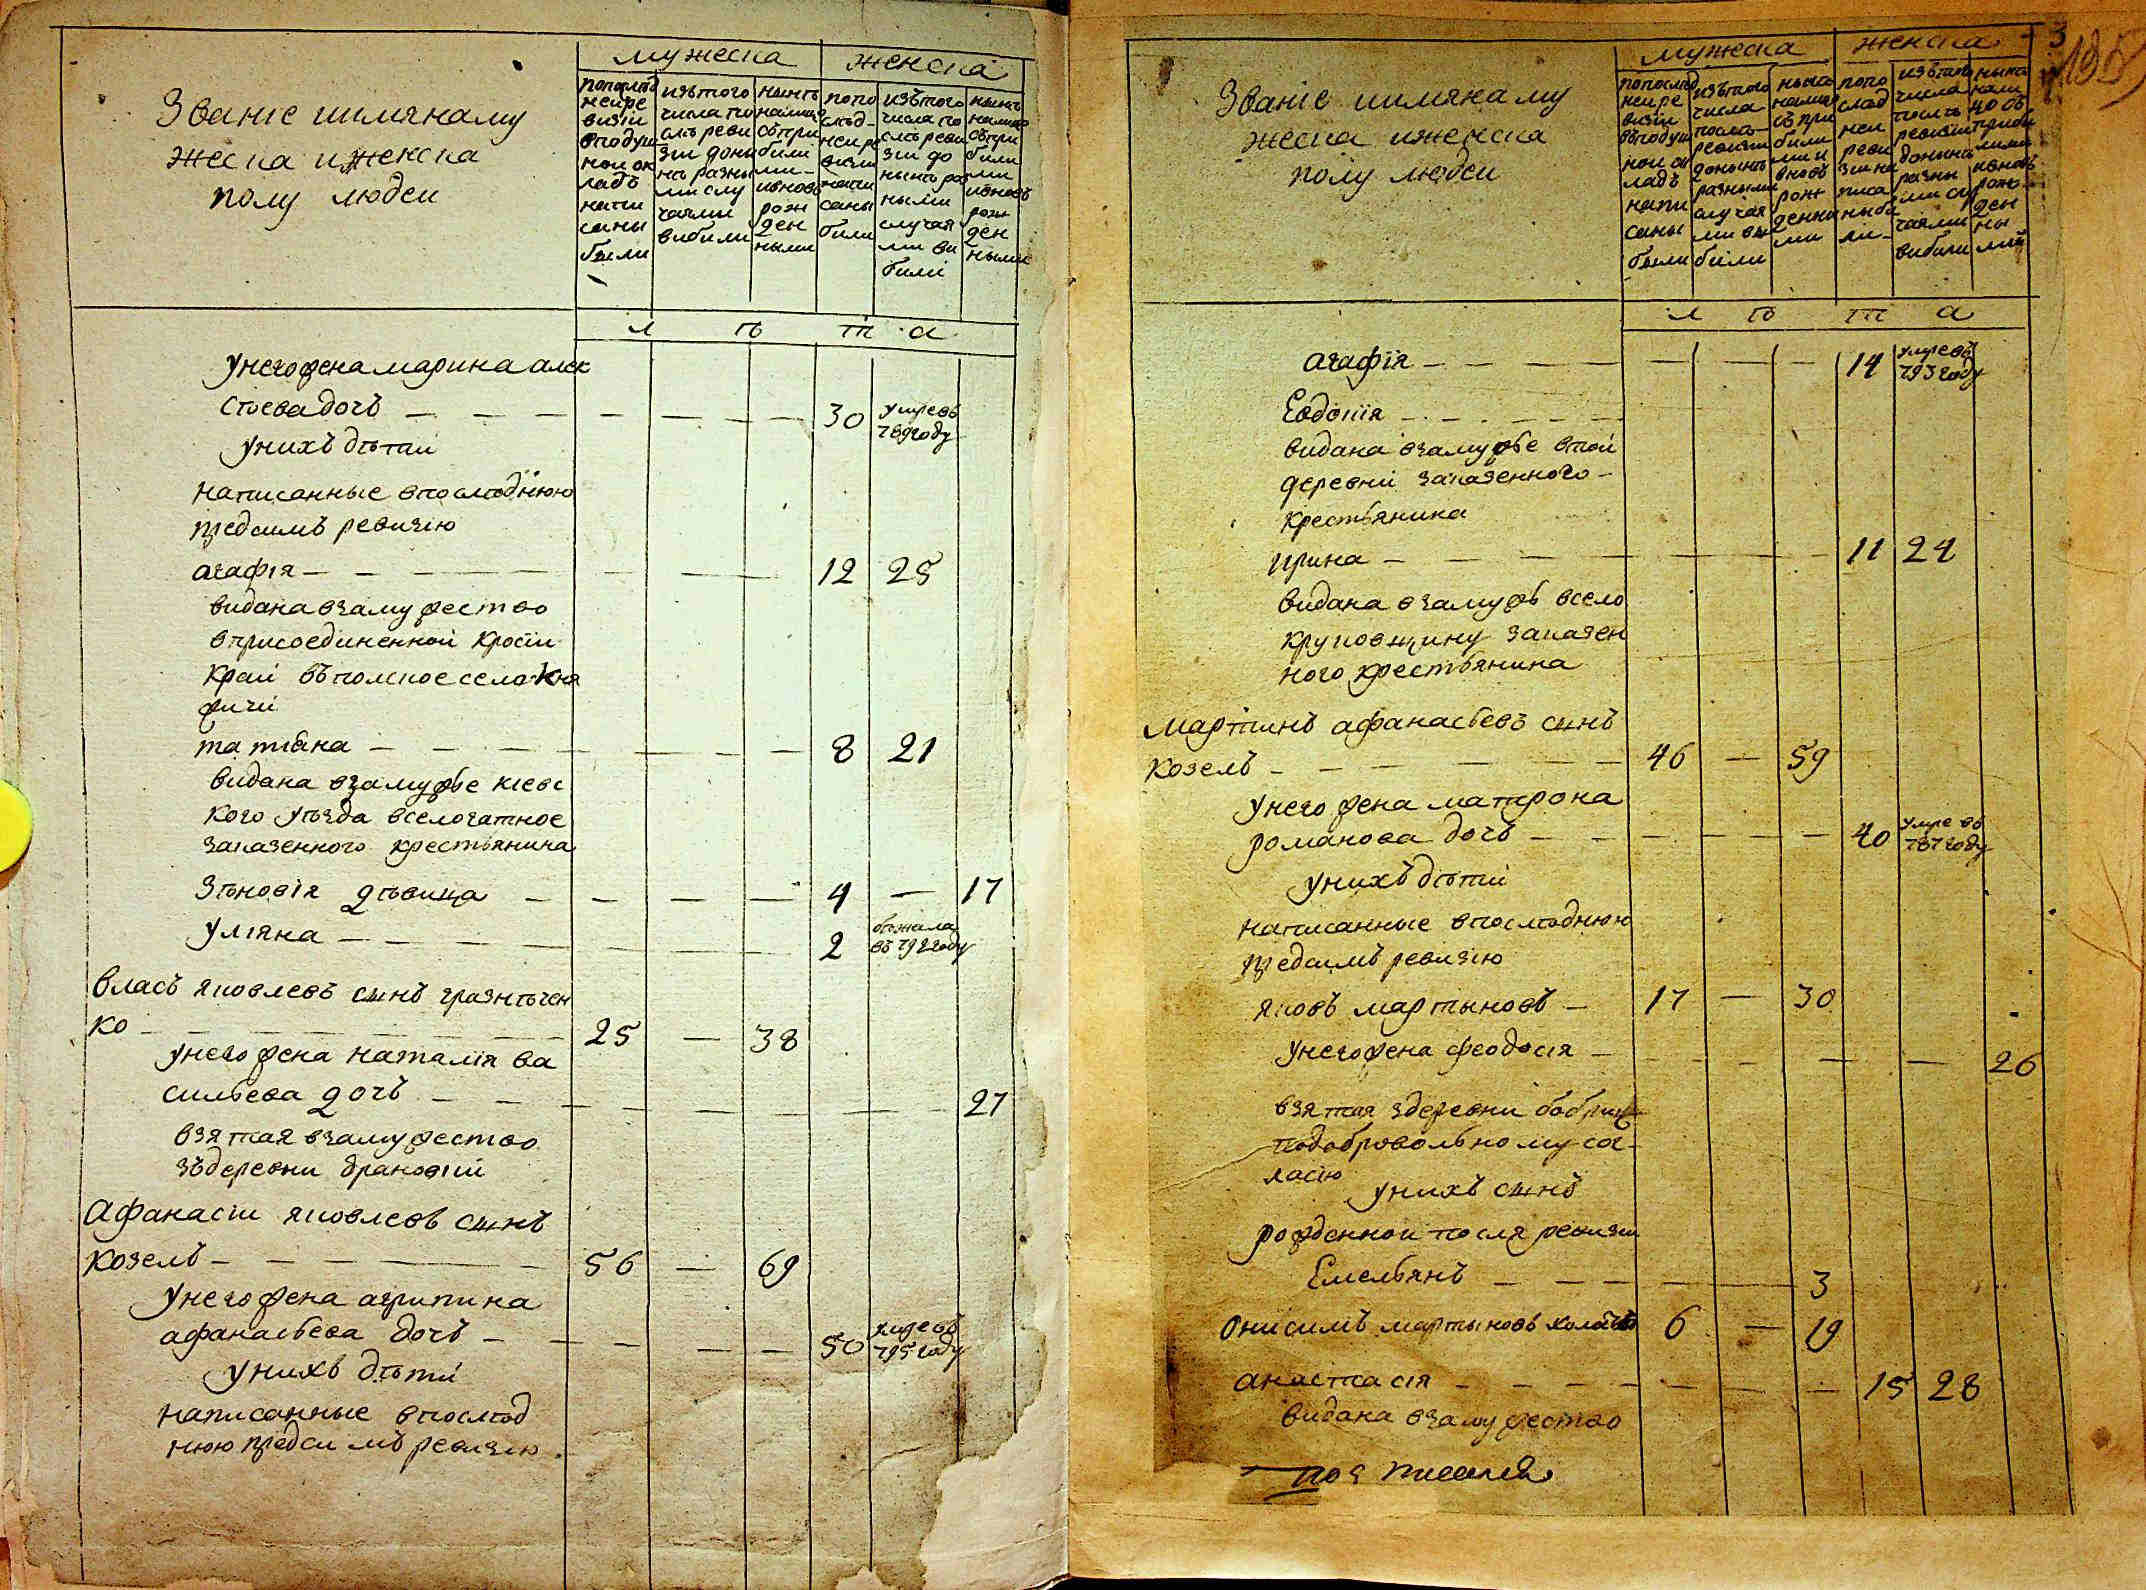 мужеска женска
Званіе иимянаму
жеска иженска
полу людеи
попослѣд
неире
визіи
вподуш
нои ок
ладъ
напи
саны
были
изътого
числа по
слѣ реви
зіи донн
нѣ разны
ми слу
чаями
вибили
нынѣ
налицо
съпри
били
ми
ивновь
рож
ден
ными
попо
слѣд
неире
визіи
напи
саны
били
изътого
числа по
слѣ реви
зіи до
нынѣ раз
ными
случая
ми ви
билі
нынѣ
налицо
съпри
били
ми
ивновь
рож
ден
ными
л ѣ т а
Унегоженамарина алек
сѣевадочъ — — — 30 умре въ
789году
унихъ дѣтии
написанные впослѣднюю
предсимъ ревизію
агафія — — — 12 25
видана взамужество
вприсоединенной кросіи
краи въполское село Кня
жичи
татіана — — — 8 21
видана взамужье кіевс
кого уѣзда вселогатное
заказенного крестьянина
Зѣновія дѣвица — — — 4 — 17
Уліяна — — — 2 бѣжала
въ 792году
власъ яковлевъ сынъ гразнѣчен
ко — — — 25 — 38
унего жена наталія ва
сильева дочъ — — — 27
взятая взамужество
зъдеревни драновіи
Афанасіи яковлевъ сынъ
козелъ — — — 56 — 69
Унего жена агрипина
афанасьева дочъ — — — 50 умре въ
795году
Унихъ дѣти
написанные впослѣд
нюю предси мъ ревизію
3
мужеска женска
Званіе иимянаму
жеска иженска
полу людеи
попослѣд
неире
визіи
въподуш
нои ок
ладъ
напи
саны
были
изътого
числа
посла
ревизіи
донынѣ
разными
случая
ми вы
били
нынѣ
налицо
съпри
били
ми и
вновь
рож
денны
ми
попо
слѣд
неи
реви
зіи на
писа
ны бы
ли
изътого
числа
послѣ
ревизіи
донынѣ
разны
ми слу
чаями
вибили
л ѣ т а
агафія — — — 14 умре въ
793году
Евдокія — — —
видана взамужье втои
деревни заказенного
крестьянина
ирина — — — 11 24
видана взамужъ всело
круповщину заказен
ного крестьянина
мартинъ афанасьевъ сынъ
козелъ — — — 46 — 59
Унего жена матрона
романова дочъ — — — 40 умре въ
787году
унихъ дѣтии
написанные впослѣднюю
предсимъ ревизію
яковъ мартыновъ — 17 — 30
унегожена феодосія — — — 26
взятая здеревни бобрик
подобровольному сог
ласію
унихъ сынъ
рожденнои посля ревизіи
Емельянъ — — — 3
Онисимъ мартыновъ 6 — 19
анастасія — — — 15 28
видана взамужество